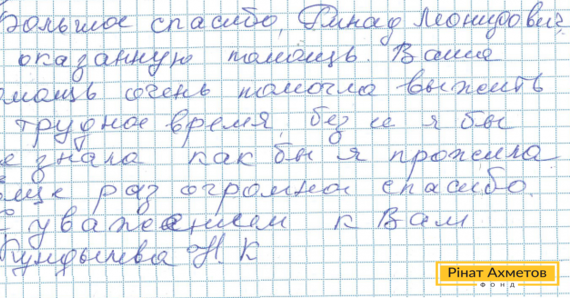 Большое спасибо, Ринад Леонидович,
оказанную помощь. Ваша
мощь очень помогла выжить
трудное время, без ее я бы
е знала как бы я прожила
еще раз огромное спасибо.
уважением к Вам
Н. К
Рінат Ахметов
ФОНД